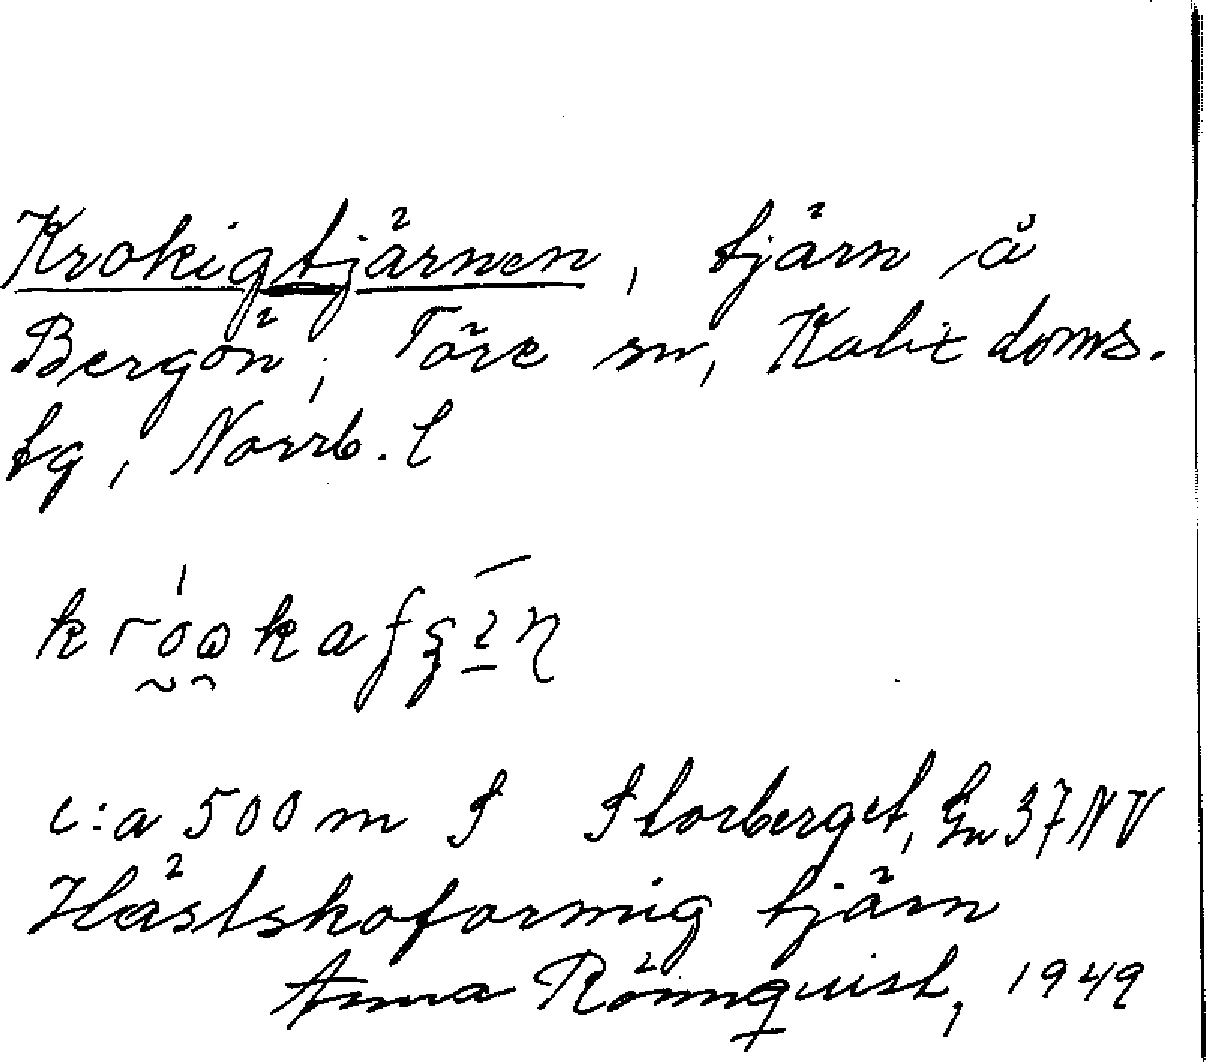 Krokigtjärnen, tjärn å
Bergön, Töre sn, Kalix doms.
tg, Norrb. l
c:a 500 m S Storberget, Gn 37 NV
Hästskoformig tjärn
Anna Rönnquist, 1949